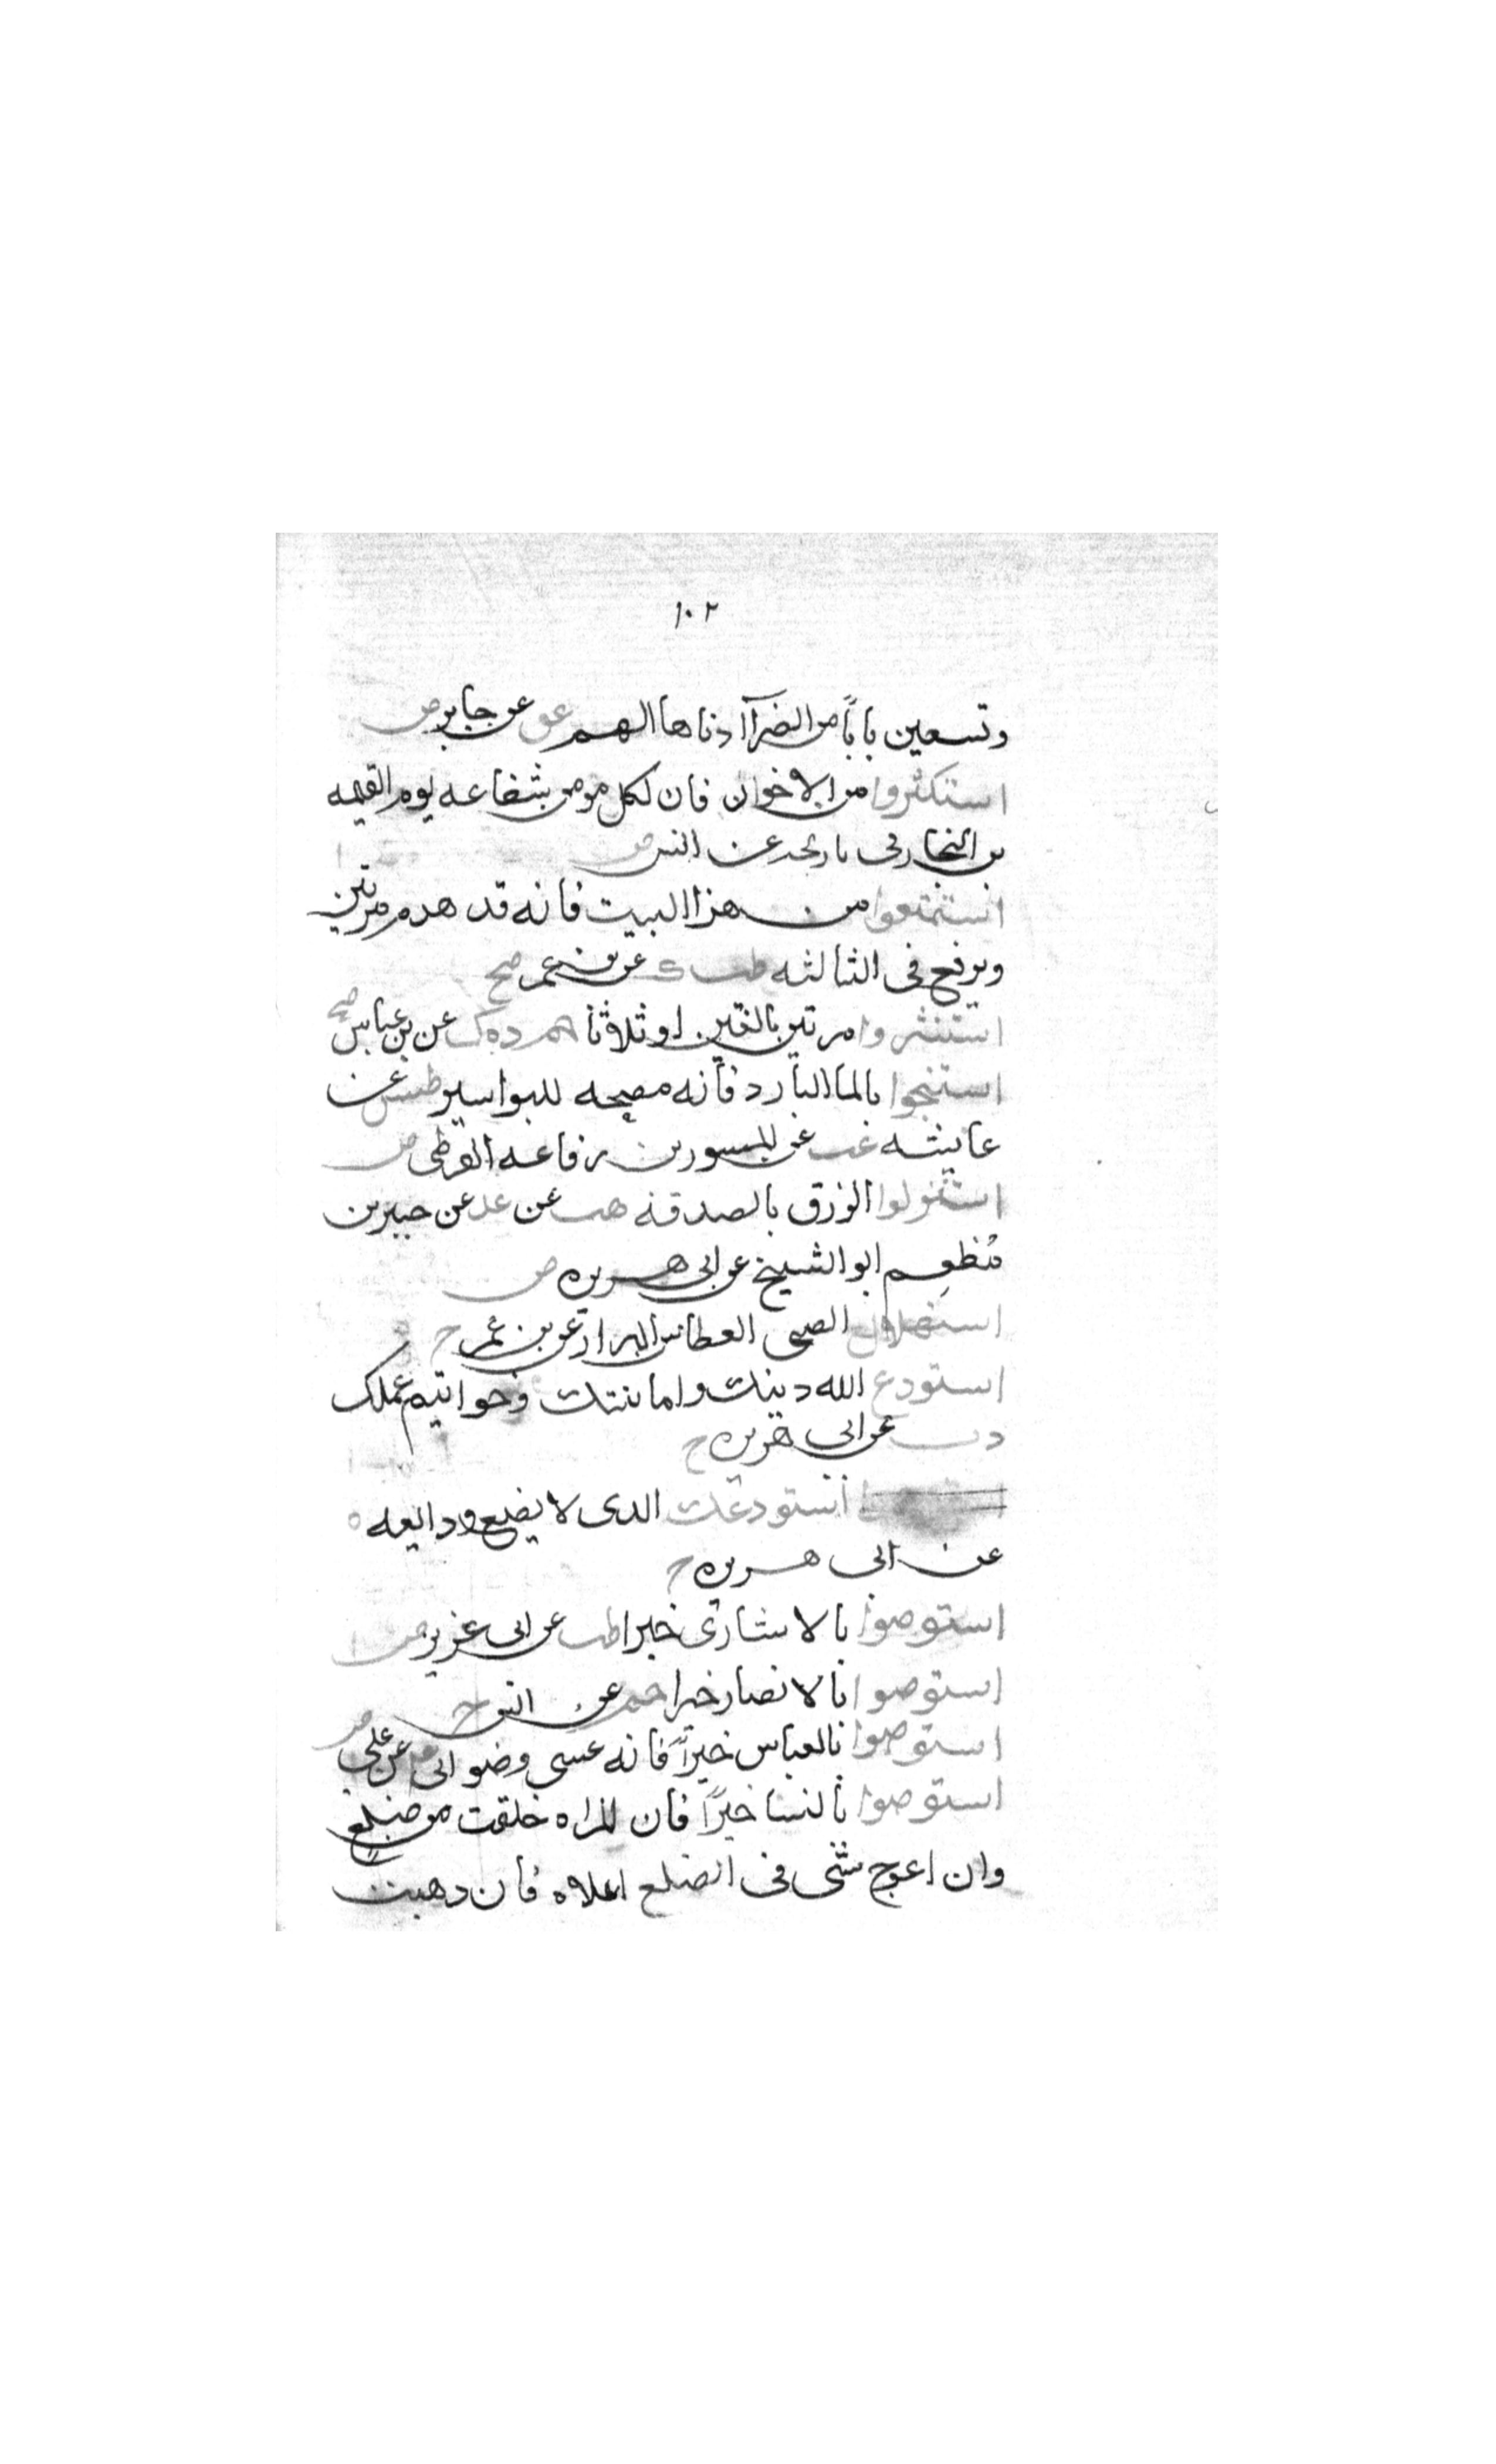 ١٠٢
وتسعين بابًا من الضرآ ادناها الهم عق عن جابر ض
استكثروا من الاخوان فان لكل مومن شفاعه يوم القيمه
بن النجار فى تاريخه عن انس ض
استمتعوا من هذا البيت فانه قد هدم مرتين
ويرفع فى الثالثه طب ك عن بن عمر صح
استنثروا مرتين بالغتين او ثلاثا حم د ه ك عن بن عباس صح
استنجوا بالما البارد فانه مصحه للبواسير طس عن
عايشه عب عن المسور بن رفاعه القرظى ض
استنزلوا الرزق بالصدقه هب عن عد عن جبير بن
مُطعِم ابو الشيخ عن ابى هريره ض
استهلال الصبى العطاس البزار عن بن عمر ح
استودع الله دينك وامانتك وخواتيم عملك
د ت عن ابى هريره ح
استودعك الله الذى لا يضيع ودايعه ه
عن ابى هريره ح
استوصوا بالاسارى خيرا طب عن ابى عزيز ض
استوصوا بالانصار خيرا حم عن انس ح
استوصوا بالعباس خيرًا فانه عمى وصنو ابى عد عن على ض
استوصوا بالنسا خيرًا فان المراه خلقت من ضلع
وان اعوج شى فى الضلع اعلاه فان ذهبت